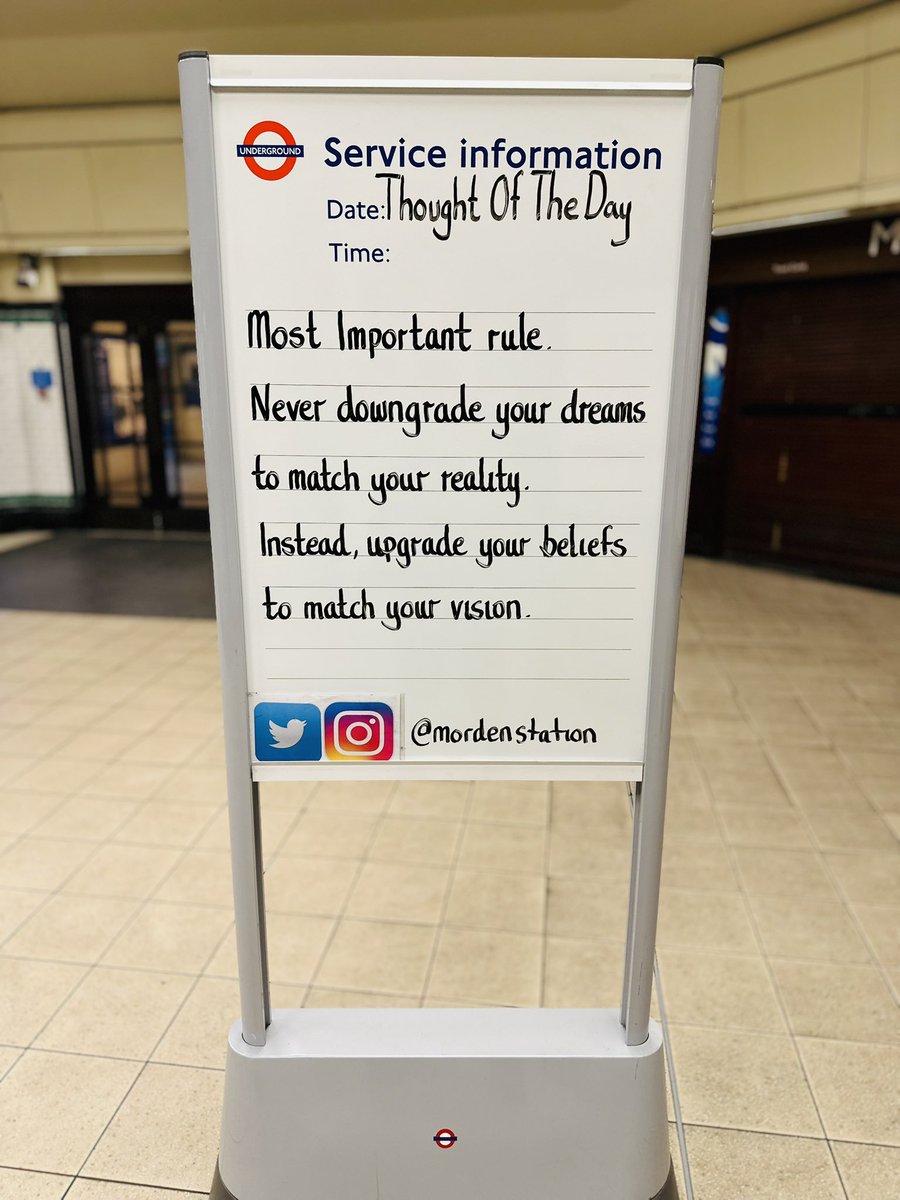 UNDERGROUND
Service information
Date: Thought Of The Day
Time:
Most Important rule.
Never downgrade your dreams
to match your reality.
Instead, upgrade your beliefs
to match your vision.
@mordenstation